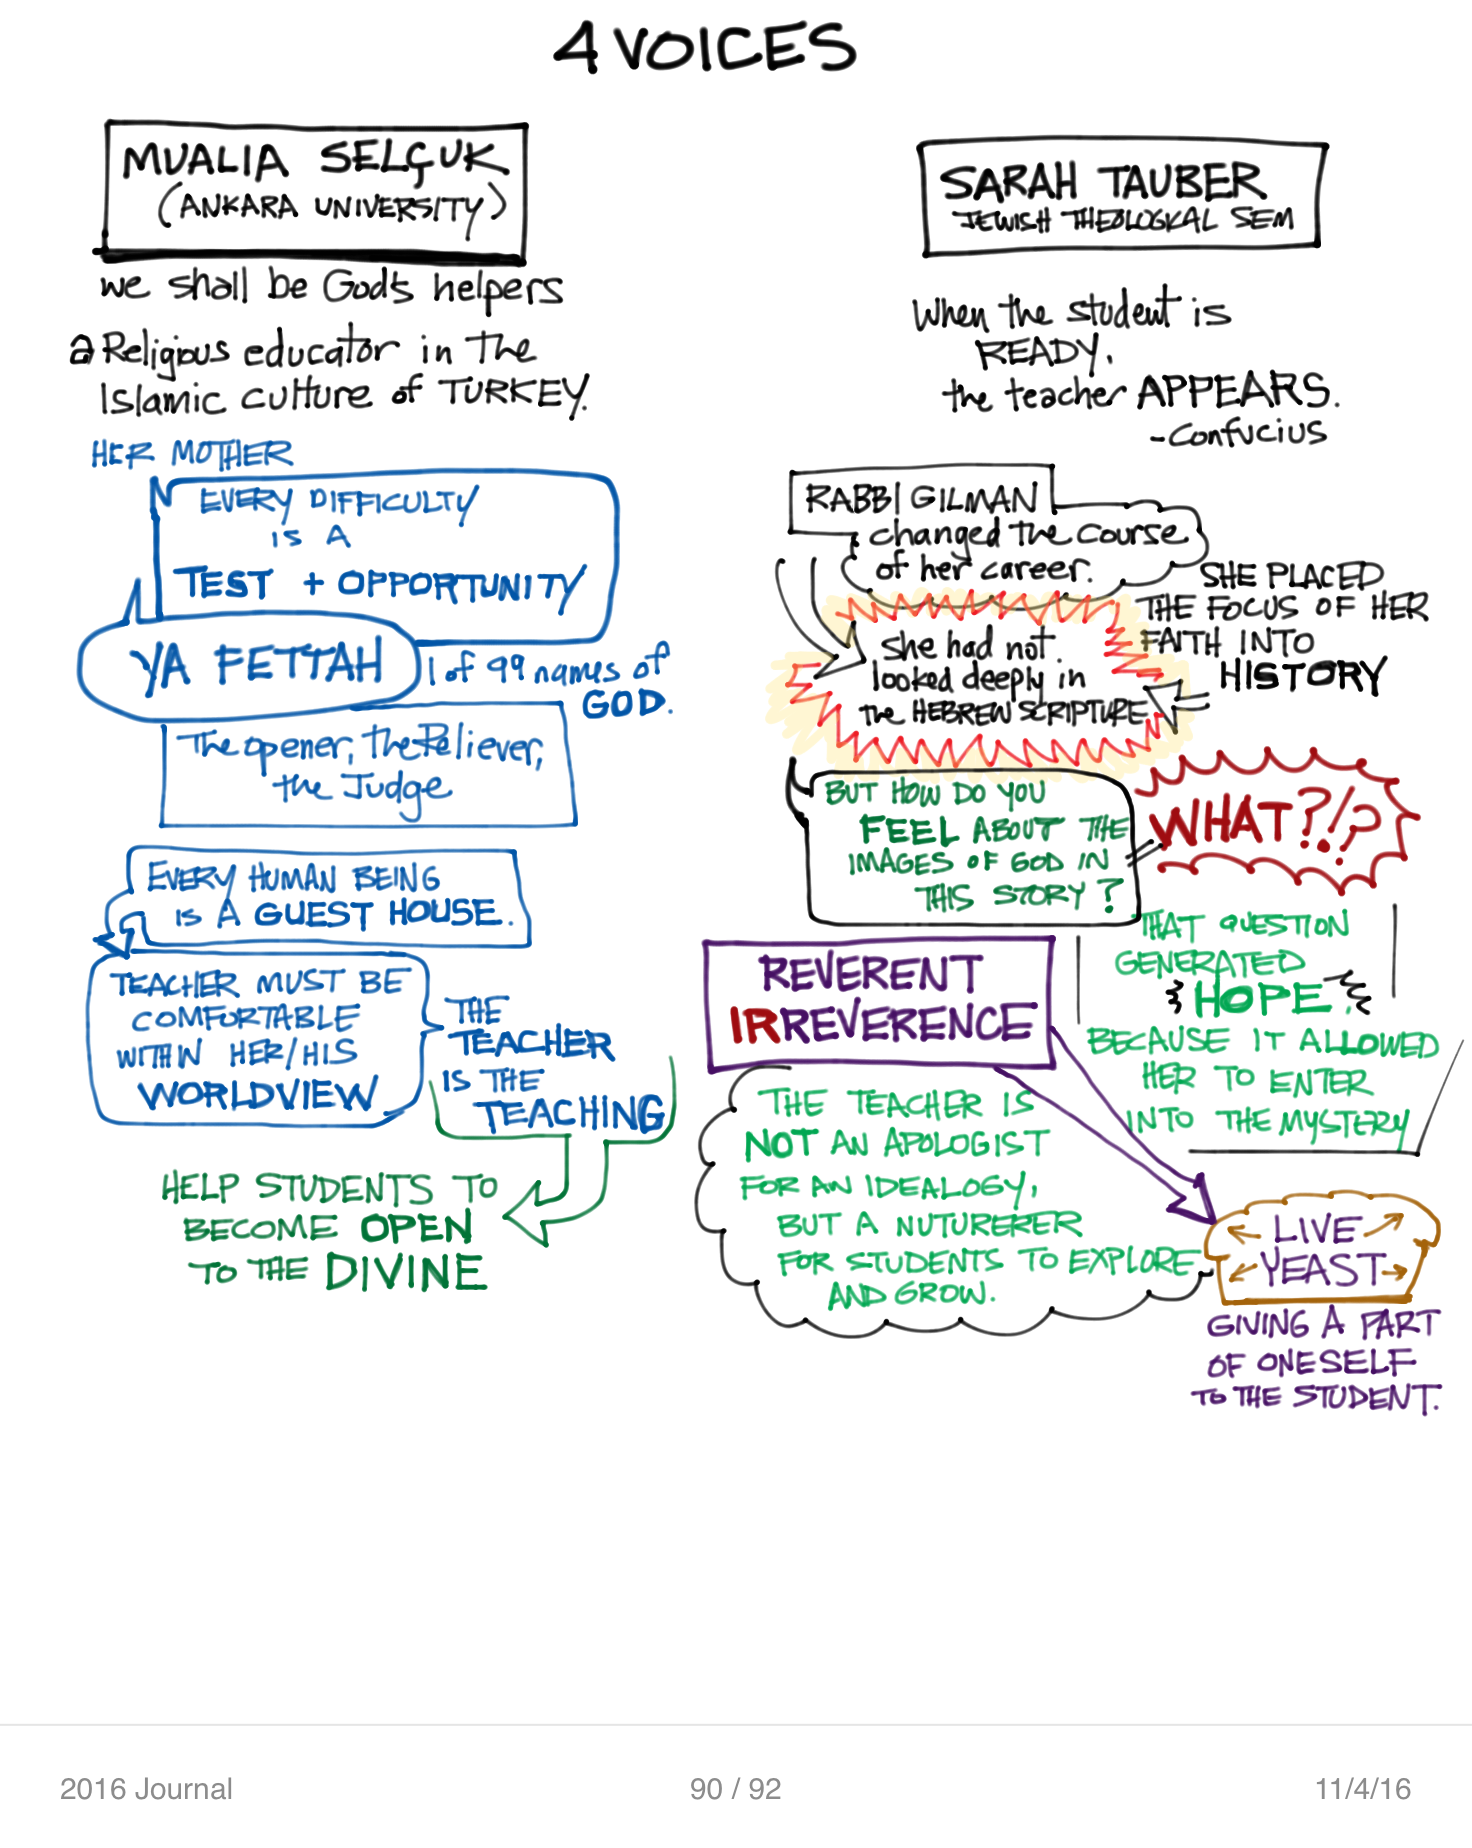 4 VOICES
MUALIA SELÇUK
(ANKARA UNIVERSITY)
we shall be God's helpers
a Religious educator in the
Islamic culture of TURKEY.
HER MOTHER
EVERY DIFFICULTY
IS A
TEST + OPPORTUNITY
YA FETTAH
1 of 99 names of
GOD.
The opener, the Reliever,
the Judge
EVERY HUMAN BEING
IS A GUEST HOUSE.
TEACHER MUST BE
COMFORTABLE
WITHIN HER/HIS
WORLDVIEW
THE
TEACHER
IS THE
TEACHING
HELP STUDENTS TO
BECOME OPEN
TO THE DIVINE
SARAH TAUBER
JEWISH THEOLOGICAL SEM
When the student is
READY,
the teacher APPEARS.
-Confucius
RABBI GILMAN
changed the course
of her career.
SHE PLACED
THE FOCUS OF HER
FAITH INTO
HISTORY
she had not
looked deeply in
the HEBREW SCRIPTURE
BUT HOW DO YOU
FEEL ABOUT THE
IMAGES OF GOD IN
THIS STORY?
WHAT?!?
THAT QUESTION
GENERATED
HOPE.
BECAUSE IT ALLOWED
HER TO ENTER
INTO THE MYSTERY
REVERENT
IRREVERENCE
THE TEACHER IS
NOT AN APOLOGIST
FOR AN IDEALOGY,
BUT A NUTURERER
FOR STUDENTS TO EXPLORE
AND GROW.
LIVE
YEAST
GIVING A PART
OF ONESELF
TO THE STUDENT.
2016 Journal
90 / 92
11/4/16